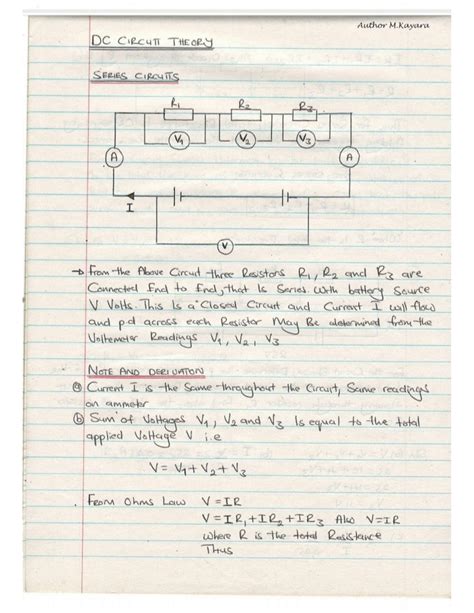 Author M.Kayara
DC CIRCUIT THEORY
SERIES CIRCUITS
R1 R2 R3
V1 V2 V3
A A
I
V
→ From the Above Circuit three Resistors R1, R2 and R3 are
Connected End to End, that Is Series With battery Source
V Volts. This Is a Closed Circuit and Current I will flow
and p.d across each Resistor May Be determined from the
Voltemeter Readings V1, V2, V3
NOTE AND DERIVATION
ⓐ Current I is the Same throughout the Circuit, Same readings
on ammeter
ⓑ Sum of Voltages V1, V2 and V3 Is equal to the total
applied Voltage V i.e
V = V1 + V2 + V3
From Ohms Law V = IR
V = IR1 + IR2 + IR3 Also V = IR
where R is the total Resistance
Thus